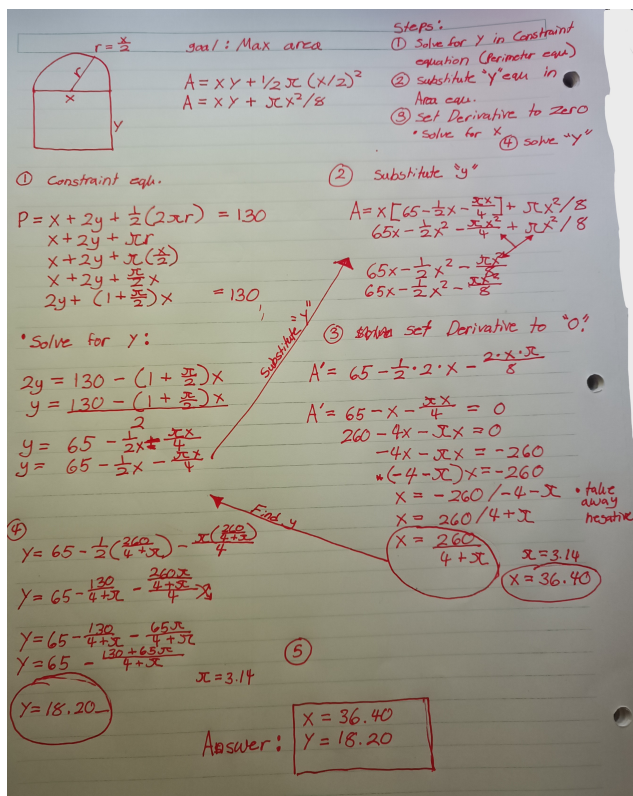 r = x/2
goal: Max area
A = xy + 1/2 π (x/2)²
A = xy + πx²/8
Steps:
① Solve for y in Constraint
equation (Perimeter equ)
② substitute "y" equ in
Area equ.
③ set Derivative to zero
• solve for x
④ solve "y"
r
x
y
① Constraint equ.
P = x + 2y + 1/2(2πr) = 130
x + 2y + πr
x + 2y + π(x/2)
x + 2y + π/2 x
2y + (1 + π/2)x = 130
• Solve for y:
2y = 130 - (1 + π/2)x
y = 130 - (1 + π/2)x / 2
y = 65 - 1/2x - πx/4
y = 65 - 1/2x - πx/4
Substitute "Y"
② Substitute "y"
A = x[65 - 1/2x - πx/4] + πx²/8
65x - 1/2x² - πx²/4 + πx²/8
65x - 1/2x² - πx²/8
65x - 1/2x² - πx²/8
③ set Derivative to "0"
A' = 65 - 1/2 · 2 · x - 2·x·π/8
A' = 65 - x - πx/4 = 0
260 - 4x - πx = 0
-4x - πx = -260
*(-4-π)x = -260
x = -260/-4-π
• take away negative
x = 260/4+π
x = 260/4+π
π = 3.14
x = 36.40
Find y
④
y = 65 - 1/2(260/4+π) - π(260/4+π)/4
y = 65 - 130/4+π - 260π/4+π/4
y = 65 - 130/4+π - 65π/4+π
y = 65 - 130+65π/4+π
π = 3.14
y = 18.20
⑤
Answer:
x = 36.40
y = 18.20